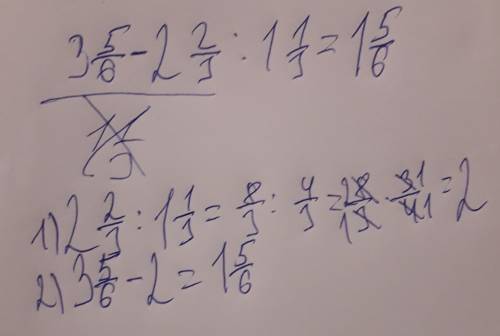 3 5/6 - 2 2/3 : 1 1/3 = 1 5/6
1) 2 2/3 : 1 1/3 = 8/3 : 4/3 = 8/3 · 3/4 = 2
2) 3 5/6 - 2 = 1 5/6